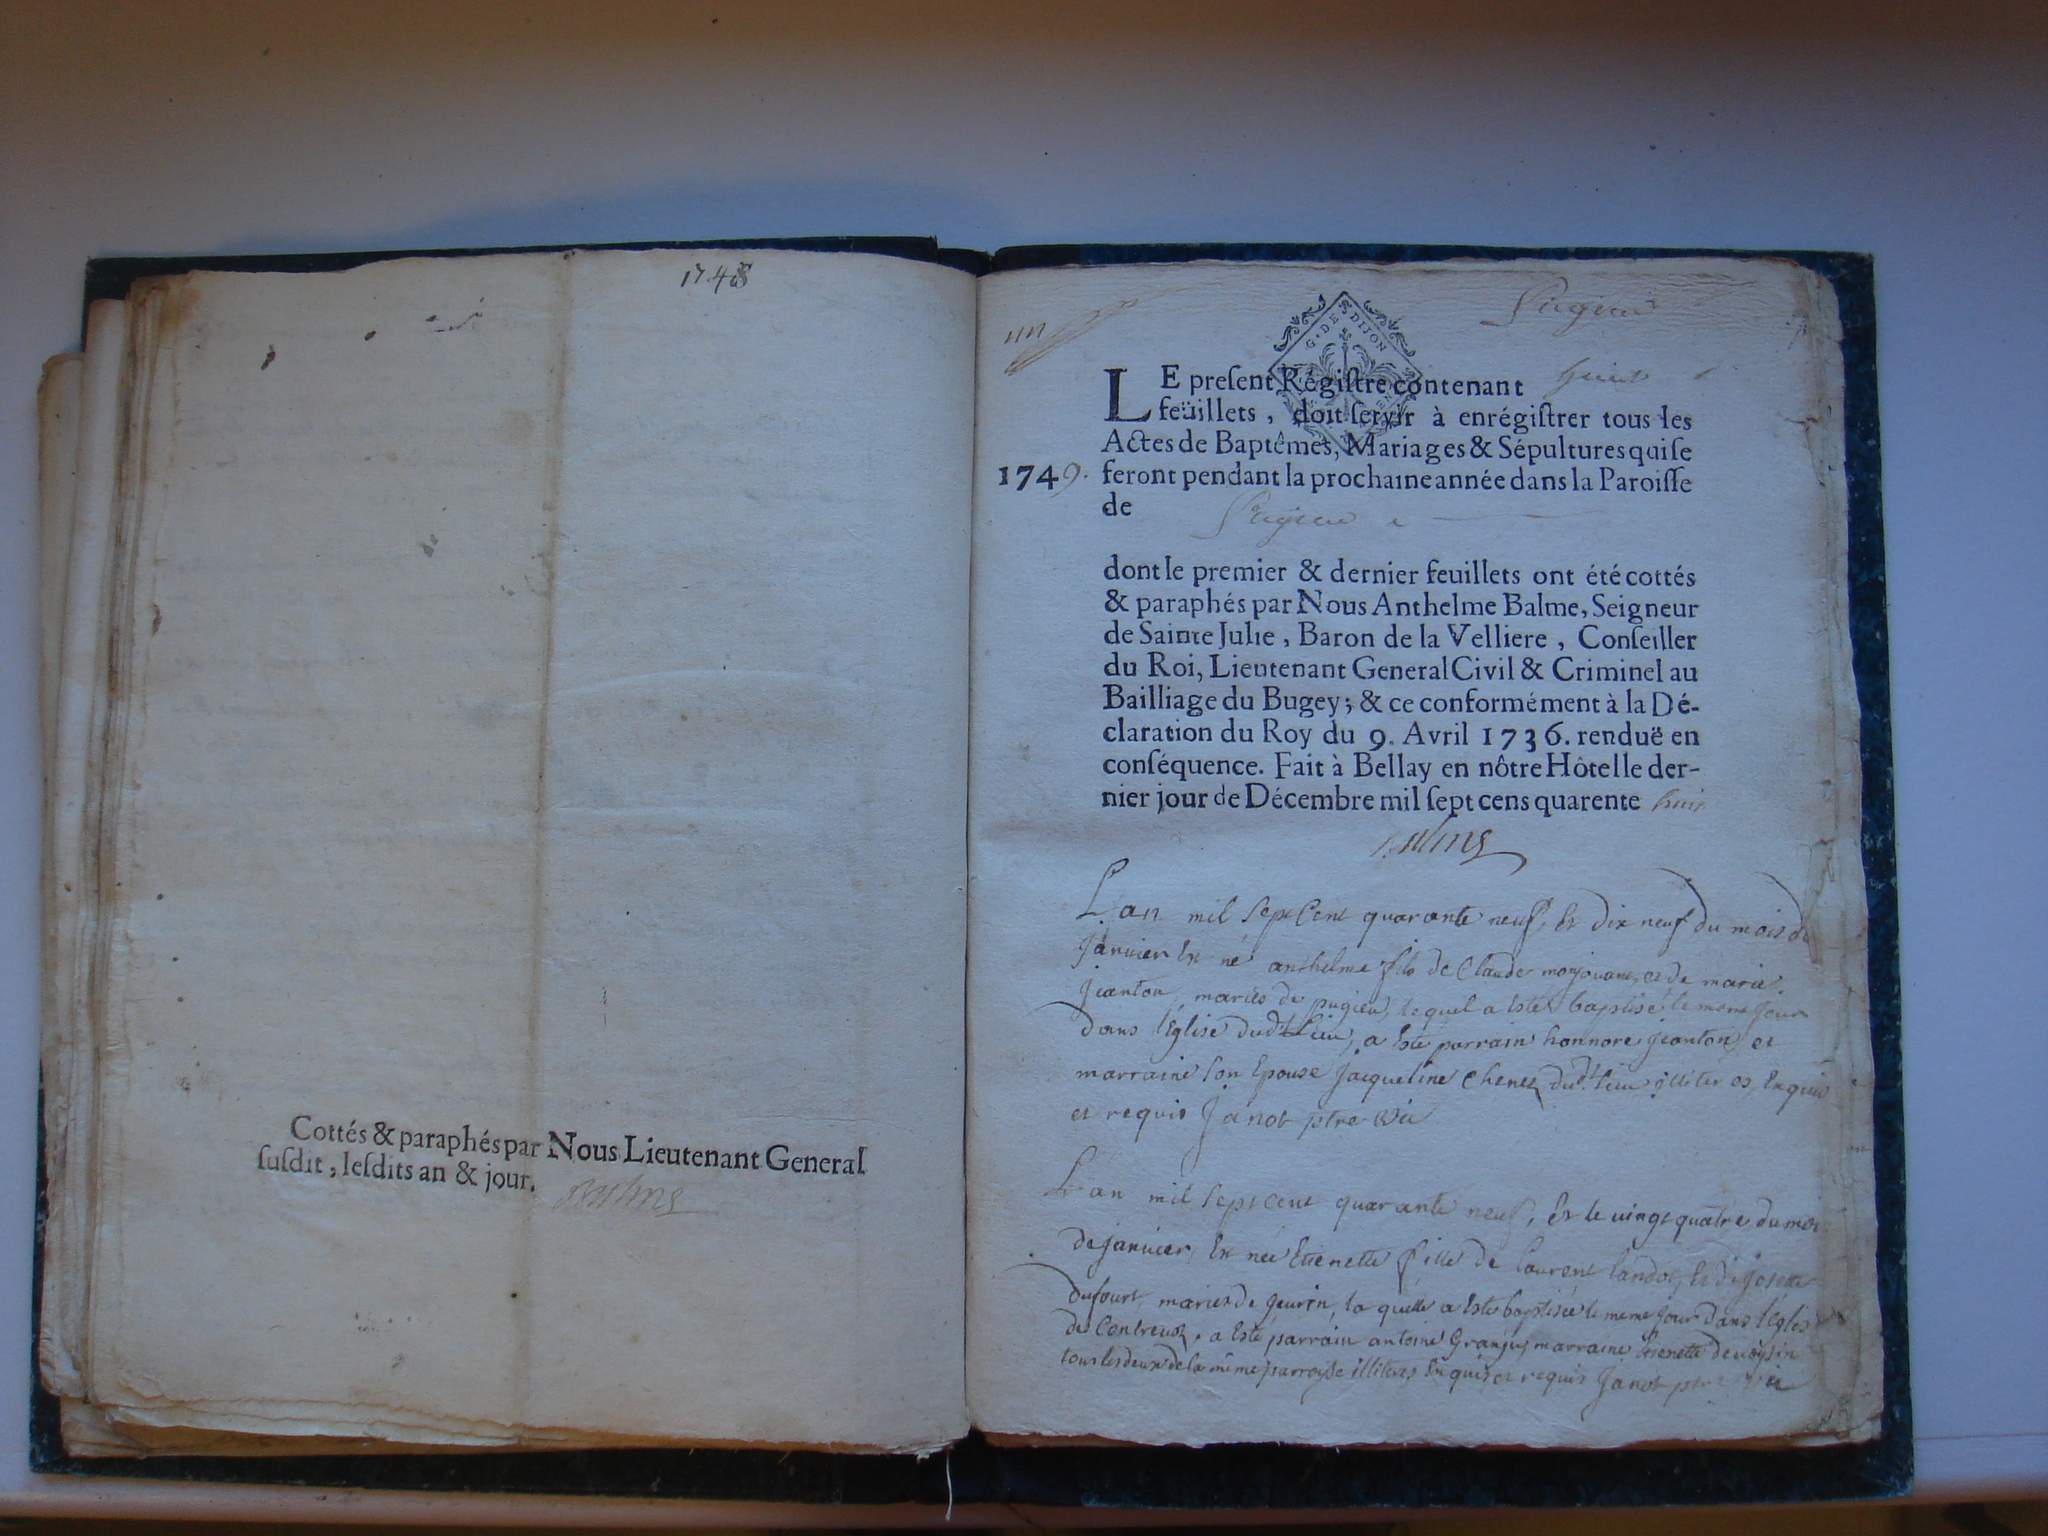 1748
Cottés & paraphés par Nous Lieutenant General
susdit, lesdits an & jour.
Balme
Pugieu
G. DE DIJON
LE present Régistre contenant huit
feüillets, doit servir à enrégistrer tous les
Actes de Baptêmes, Mariages & Sépultures qui se
1749. feront pendant la prochaine année dans la Paroisse
de Pugieu
dont le premier & dernier feuillets ont été cottés
& paraphés par Nous Anthelme Balme, Seigneur
de Sainte Julie, Baron de la Velliere, Conseiller
du Roi, Lieutenant General Civil & Criminel au
Bailliage du Bugey; & ce conformément à la Dé-
claration du Roy du 9. Avril 1736. renduë en
conséquence. Fait à Bellay en nôtre Hôtel le der-
nier jour de Décembre mil sept cens quarente huit
Balme
L'an mil sept Cent quarante neuf, Et dix neuf du mois de
Janvier Est né anthelme fils de Claude monjouant, et de marie
Jeanton, mariés de pugieu, lequel a Esté baptisé le meme Jour
dans l'Eglise dud.t Lieu, a Esté parrain honnore Jeanton, et
marraine son Epouse Jacqueline Chenez dud.t Lieu illiteres, Enquis
et requis Janot ptre vic
L'an mil sept cent quarante neuf, Et le vingt quatre du mois
de Janvier, Est née Etienette fille de Laurent Landoz, Et de Josette
Dufourt, mariés de Geurin, la quelle a Esté baptisée le meme Jour dans l'Eglise
de Contrevoz, a Esté parrain antoine Granjus, marraine Etienette Devoysin
tous les deux de la même parroisse illiteres Enquis et requis Janot ptre vic